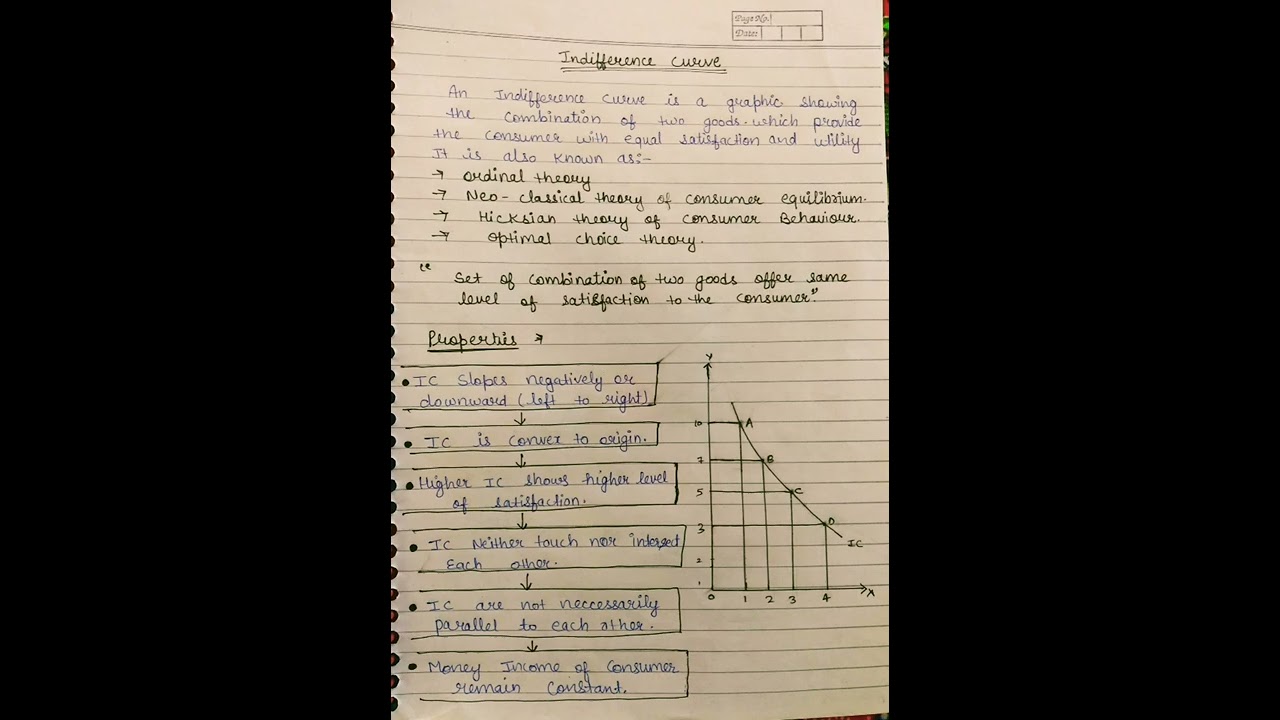 Page No.
Date:
Indifference curve
An Indifference curve is a graphic showing
the combination of two goods. which provide
the consumer with equal satisfaction and utility
It is also known as:-
→ ordinal theory
→ Neo-classical theory of consumer equilibrium.
→ Hicksian theory of consumer Behaviour.
→ optimal choice theory.
"Set of combination of two goods offer same
level of satisfaction to the consumer."
Properties →
• IC Slopes negatively or
downward (left to right)
• IC is convex to origin.
• Higher IC shows higher level
of satisfaction.
• IC Neither touch nor intersect
Each other.
• IC are not neccessarily
parallel to each other.
• Money Income of Consumer
remain Constant.
Y
10 A
7 B
5 C
3 D
IC
2
1
0 1 2 3 4 X